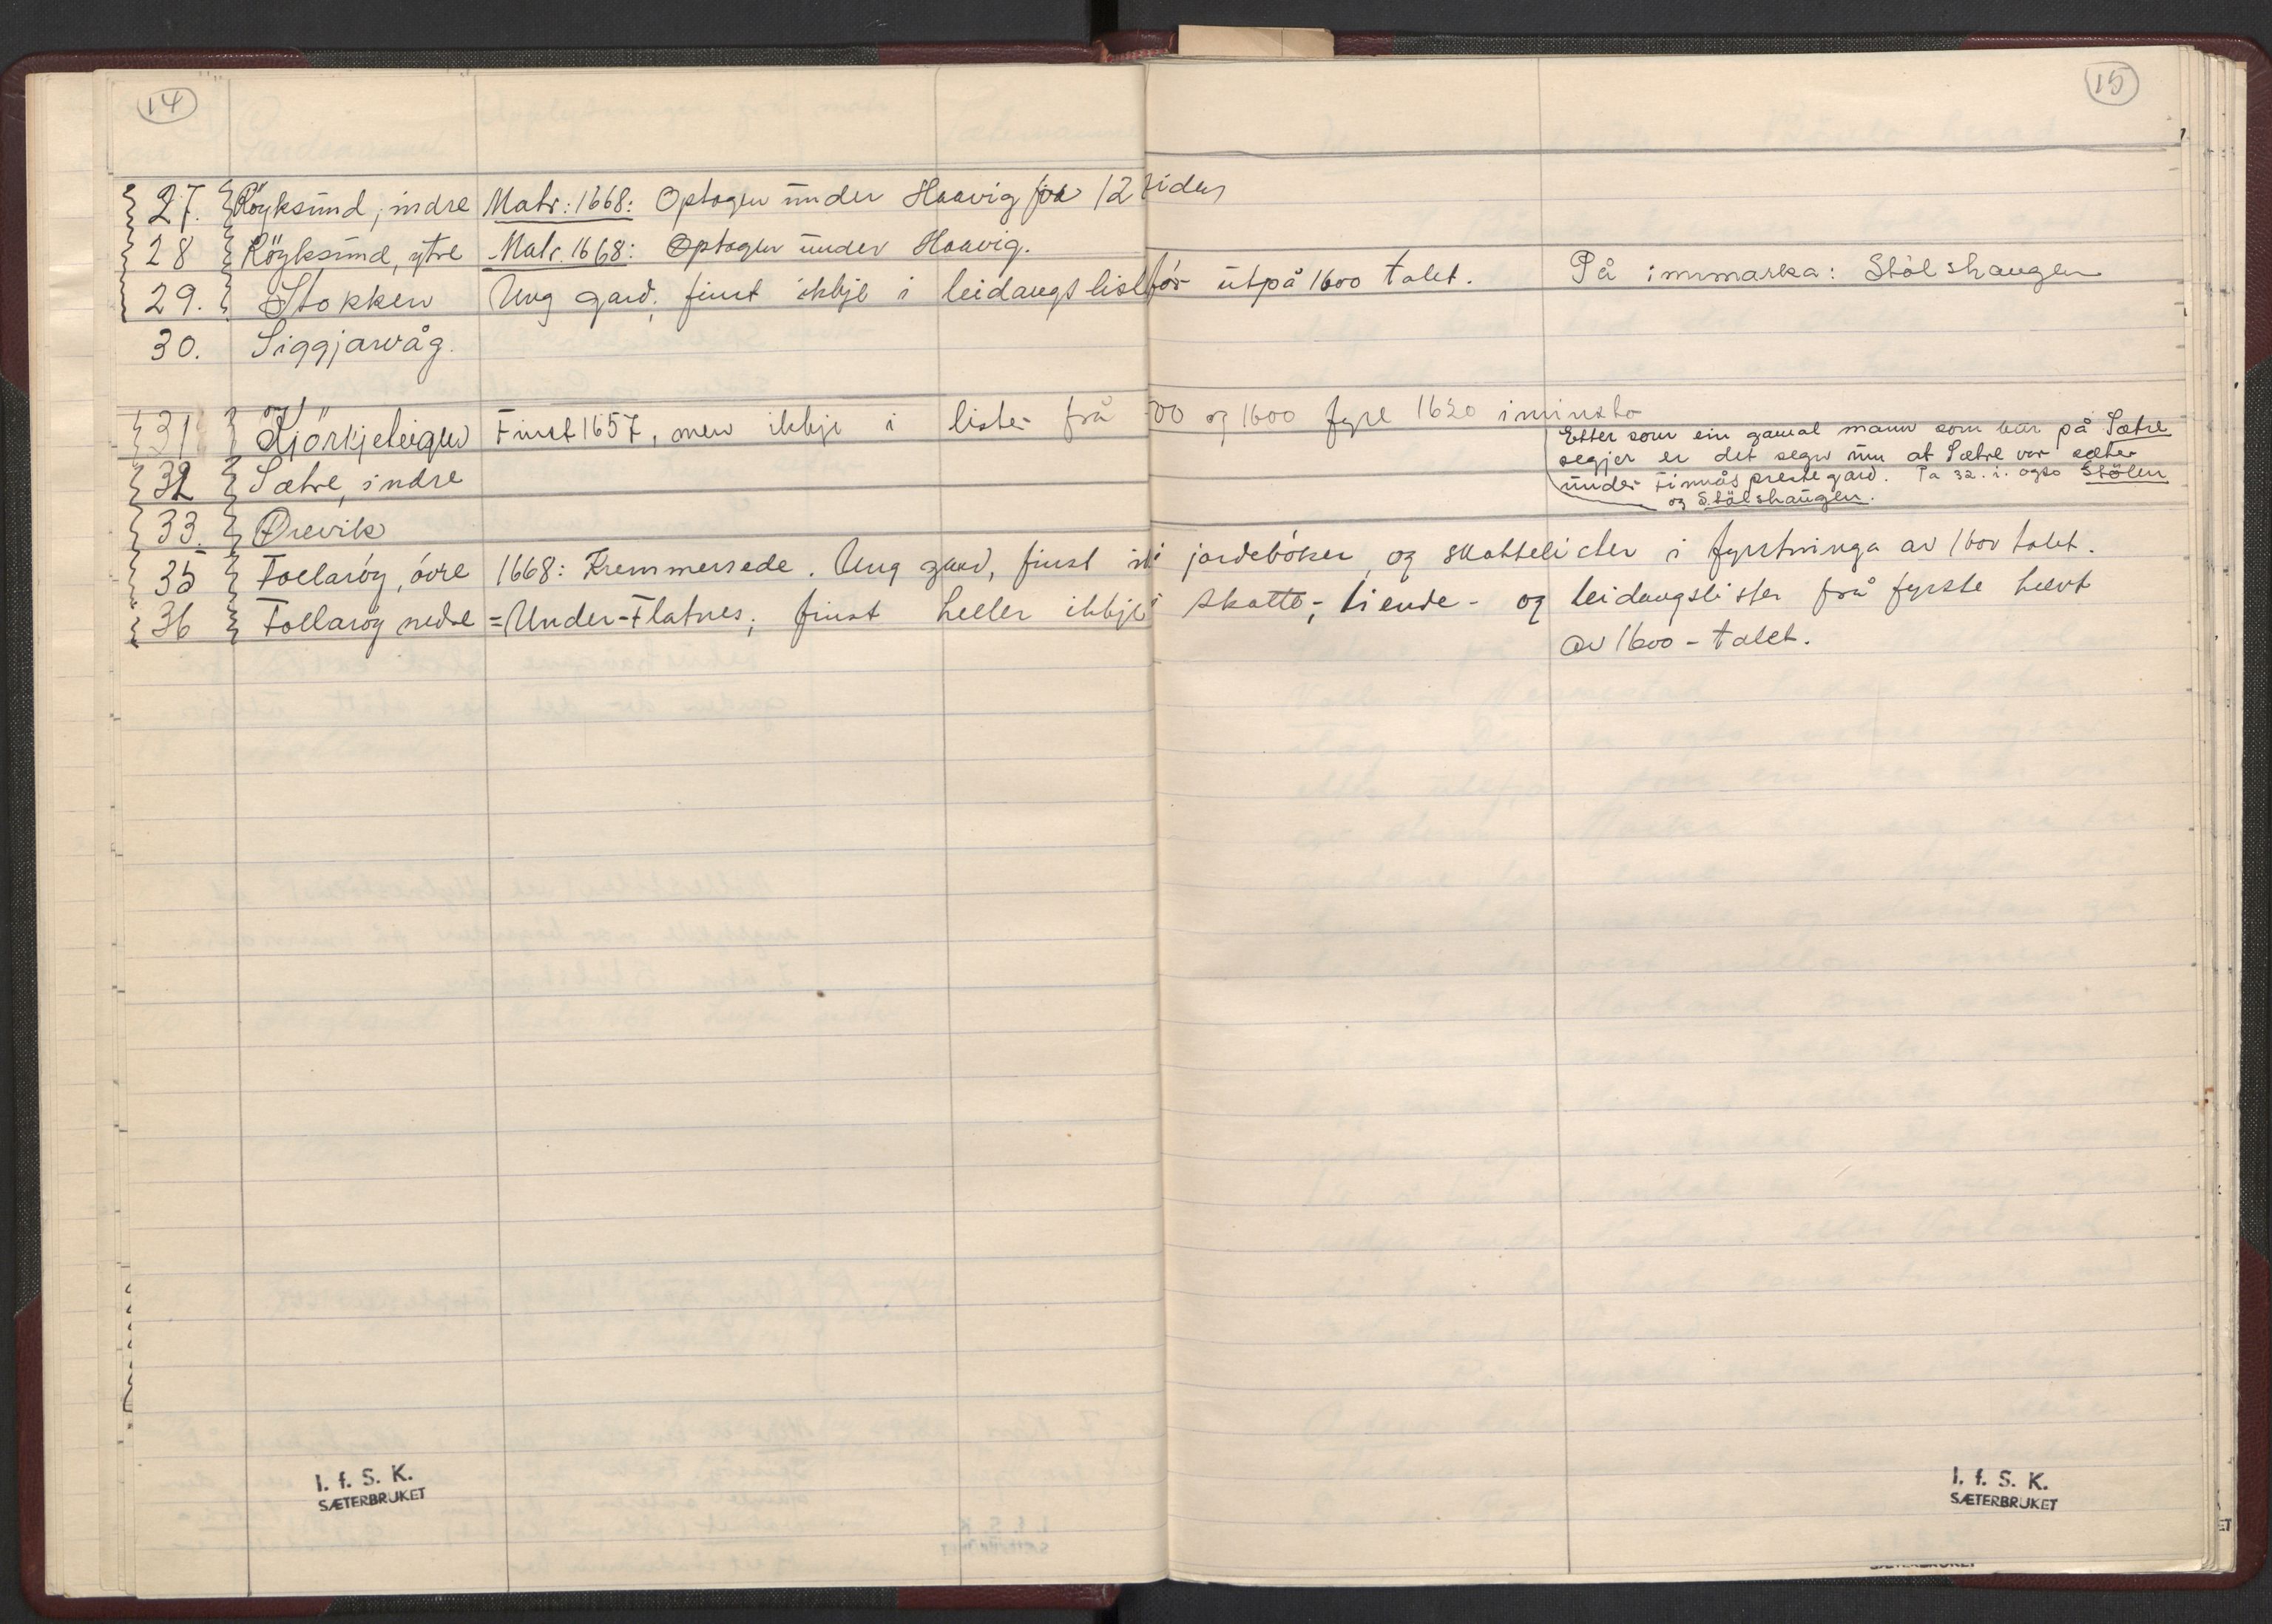 14
15
27. Röyksund, indre Matr: 1668: Optagen under Haavig for 12 tiden
28 Röyksund, ytre Matr. 1668: Optagen under Haavig.
29. Stokken Ung gard, finst ikkje i leidangslist för utpå 1600 talet. På innmarka: Stölshaugen
30. Siggjarvåg.
31 Kjörkjeteigen Finst 1657, men ikkje i lister frå 00 og 1600 fyre 1620 iminsto
Etter som ein gamal mann som bur på Sætre
segjer er det segn um at Sætre var sæter
under Finnås prestegard. Pa 32. i. også Stölen
og Stölshaugen.
32 Sætre, indre
33. Ørevik
35 Follaröy, övre 1668: Fremmersede. Ung gard, finst i jordeböker, og skattelister i fyrstninga av 1600 talet.
36 Follaröy nedre = Under-Flatnes; finst heller ikkje i skatte-, tiende- og leidangslister frå fyrste hævt
av 1600-talet.
I. f. S. K.
SÆTERBRUKET
I. f. S. K.
SÆTERBRUKET